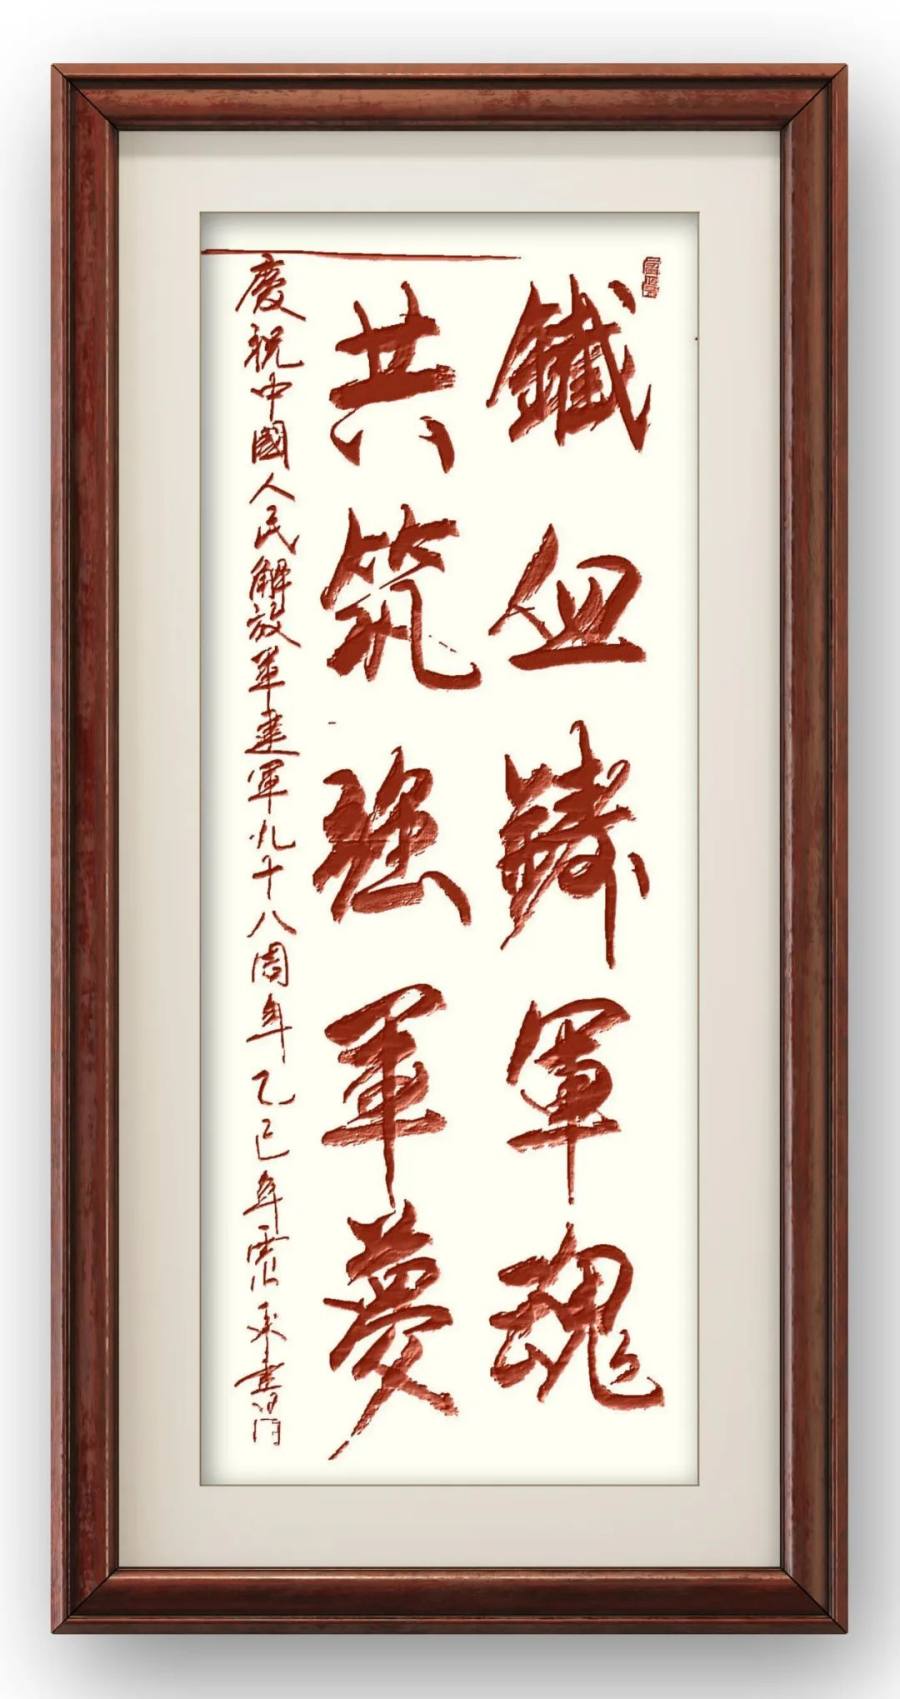 鐵血鑄軍魂
共筑强軍夢
慶祝中國人民解放軍建軍九十八周年乙巳年雲山禾書